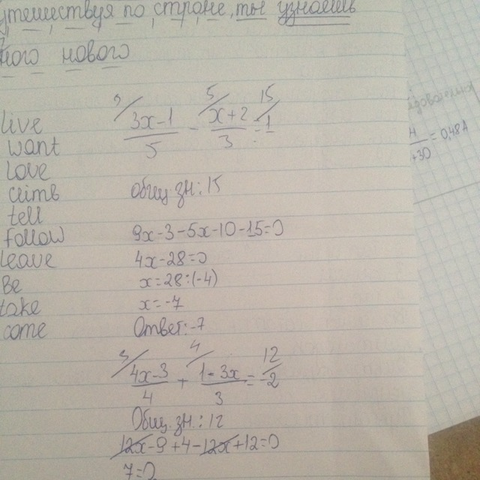 утешествуя по стране, ты узнаешь
ного нового
live
want
love
climb
tell
follow
leave
Be
take
come
3/ 5/ 15/
3x-1/5 - x+2/3 = 1
общ. зн.: 15
9x-3-5x-10-15=0
4x-28=0
x=28:(-4)
x=-7
Ответ:-7
3/ 4/ 12/
4x-3/4 + 1-3x/3 = -2
Общ. зн.: 12
12x-9+4-12x+12=0
7=0
=0,48А
+30